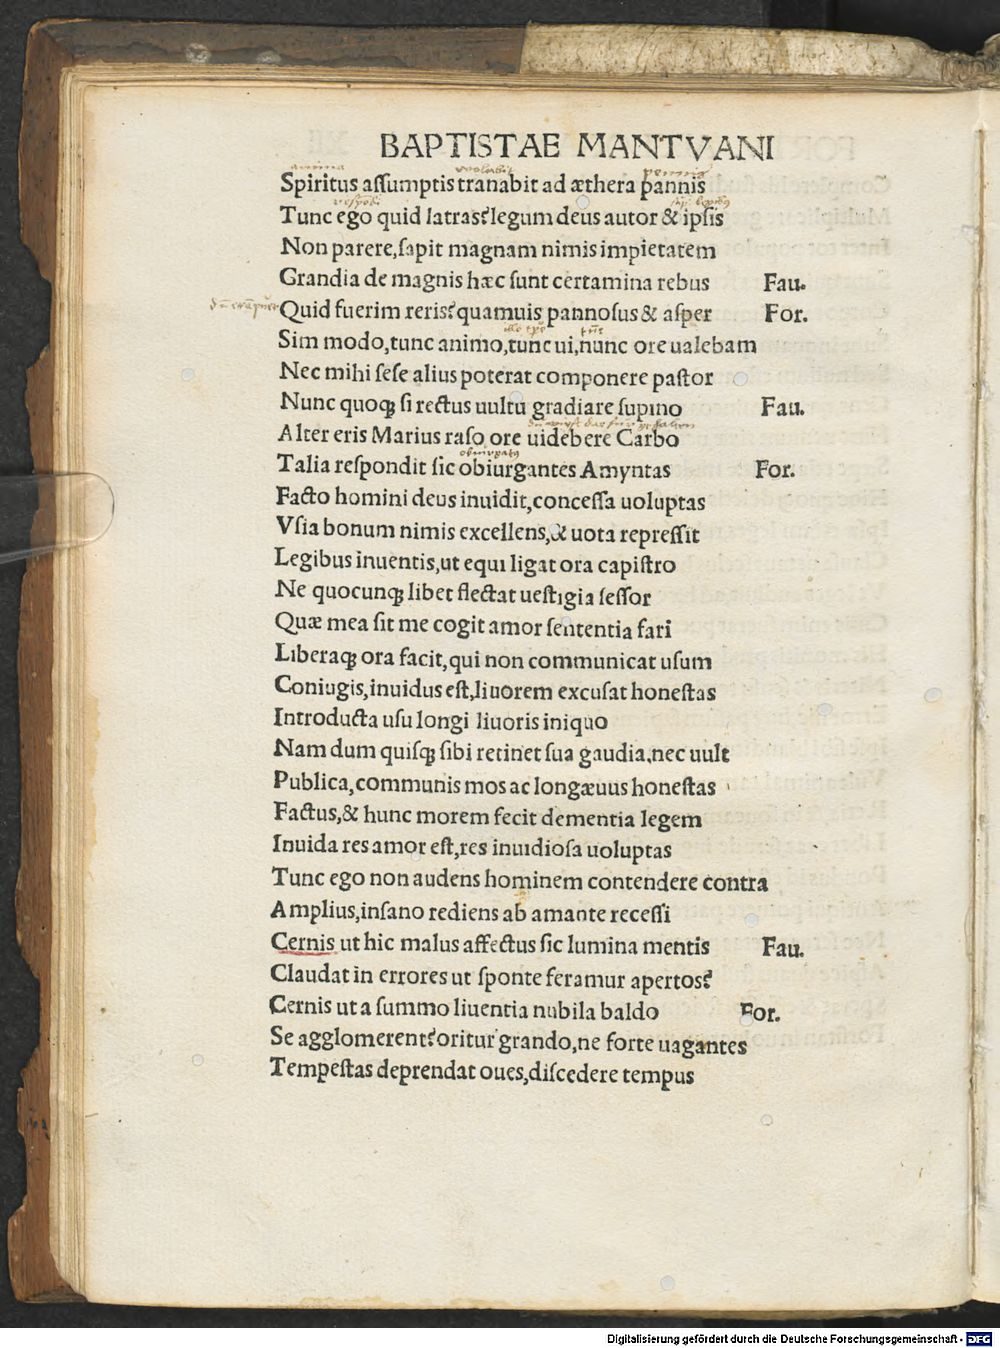 BAPTISTAE MANTVANI
anima
Spiritus aſſumptis tranabit ad æthera pannis
Tunc ego quid latras? legum deus autor & ipſis
Non parere, ſapit magnam nimis impietatem
Grandia de magnis hæc ſunt certamina rebus Fau.
Quid fuerim reris? quamuis pannoſus & aſper For.
Sim modo, tunc animo, tunc ui, nunc ore ualebam
Nec mihi ſeſe alius poterat componere paſtor
Nunc quoqꝫ ſi rectus uultu gradiare ſupino Fau.
Alter eris Marius raſo ore uidebere Carbo
Talia reſpondit ſic obiurgantes Amyntas For.
Facto homini deus inuidit, conceſſa uoluptas
Vſia bonum nimis excellens, & uota repreſſit
Legibus inuentis, ut equi ligat ora capiſtro
Ne quocunqꝫ libet flectat ueſtigia ſeſſor
Quæ mea ſit me cogit amor ſententia fari
Liberaqꝫ ora facit, qui non communicat uſum
Coniugis, inuidus eſt, liuorem excuſat honeſtas
Introducta uſu longi liuoris iniquo
Nam dum quiſqꝫ ſibi retinet ſua gaudia, nec uult
Publica, communis mos ac longæuus honeſtas
Factus, & hunc morem fecit dementia legem
Inuida res amor eſt, res inuidioſa uoluptas
Tunc ego non audens hominem contendere contra
Amplius, inſano rediens ab amante receſſi
Cernis ut hic malus affectus ſic lumina mentis Fau.
Claudat in errores ut ſponte feramur apertos?
Cernis ut a ſummo liuentia nubila baldo For.
Se agglomerent? oritur grando, ne forte uagantes
Tempeſtas deprendat oues, diſcedere tempus
Digitalisierung gefördert durch die Deutsche Forschungsgemeinschaft - DFG